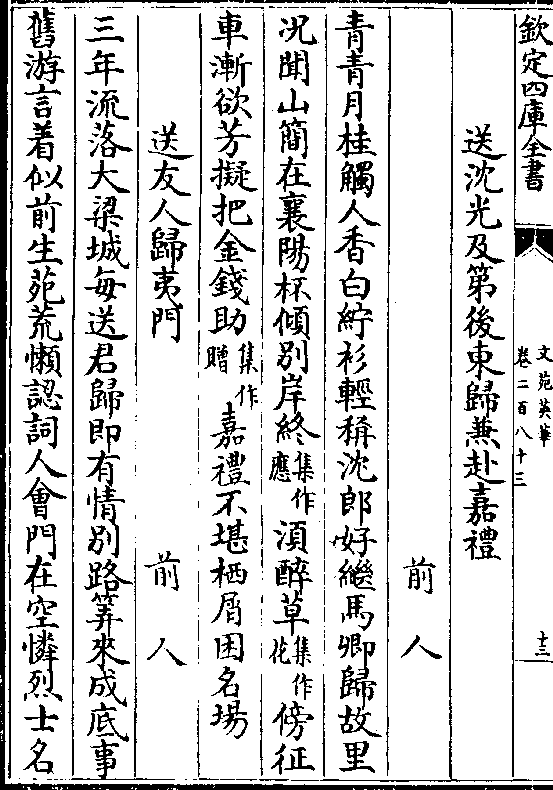 欽定四庫全書
文苑英華
卷二百八十三
十三
送沈光及第後東歸兼赴嘉禮
前人
青青月桂觸人香白紵衫輕稱沈郎好繼馬卿歸故里
况聞山簡在襄陽杯傾别岸終集作應湏醉草集作花傍征
車漸欲芳擬把金錢助集作贈嘉禮不堪栖屑困名場
送友人歸夷門
前人
三年流落大梁城每送君歸即有情别路筭來成底事
舊游言着似前生苑荒懶認詞人會門在空憐烈士名